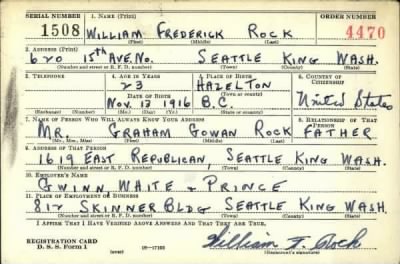 SERIAL NUMBER 1. NAME (Print) ORDER NUMBER
1508 WILLIAM FREDERICK ROCK 4470
(First) (Middle) (Last)
2. ADDRESS (Print)
620 15TH AVE. NO. SEATTLE KING WASH.
(Number and street or R. F. D. number) (Town) (County) (State)
3. TELEPHONE 4. AGE IN YEARS 5. PLACE OF BIRTH 6. COUNTRY OF CITIZENSHIP
23 HAZELTON
DATE OF BIRTH (Town or county)
Nov. 13 1916 B.C. United States
(Exchange) (Number) (Mo.) (Day) (Yr.) (State or country)
7. NAME OF PERSON WHO WILL ALWAYS KNOW YOUR ADDRESS 8. RELATIONSHIP OF THAT PERSON
MR. GRAHAM GOWAN ROCK FATHER
(Mr., Mrs., Miss) (First) (Middle) (Last)
9. ADDRESS OF THAT PERSON
1619 EAST REPUBLICAN, SEATTLE KING WASH.
(Number and street or R. F. D. number) (Town) (County) (State)
10. EMPLOYER'S NAME
GWINN, WHITE & PRINCE
11. PLACE OF EMPLOYMENT OR BUSINESS
812 SKINNER BLDG SEATTLE KING WASH.
(Number and street or R. F. D. number) (Town) (County) (State)
I AFFIRM THAT I HAVE VERIFIED ABOVE ANSWERS AND THAT THEY ARE TRUE.
REGISTRATION CARD
D. S. S. Form 1 (over) 16—17105 William F. Rock
(Registrant's signature)